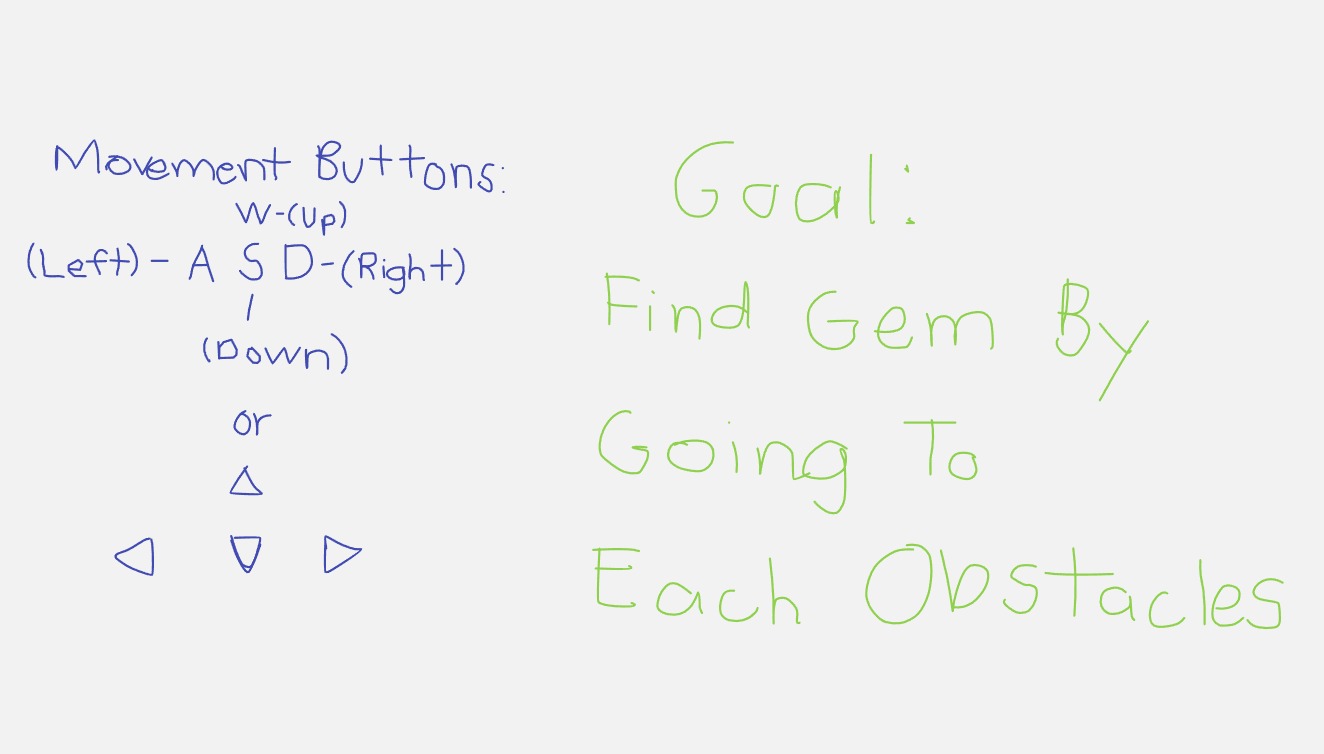 Movement Buttons:
W-(Up)
(Left)- A S D-(Right)
(Down)
or
Goal:
Find Gem By
Going To
Each Obstacles